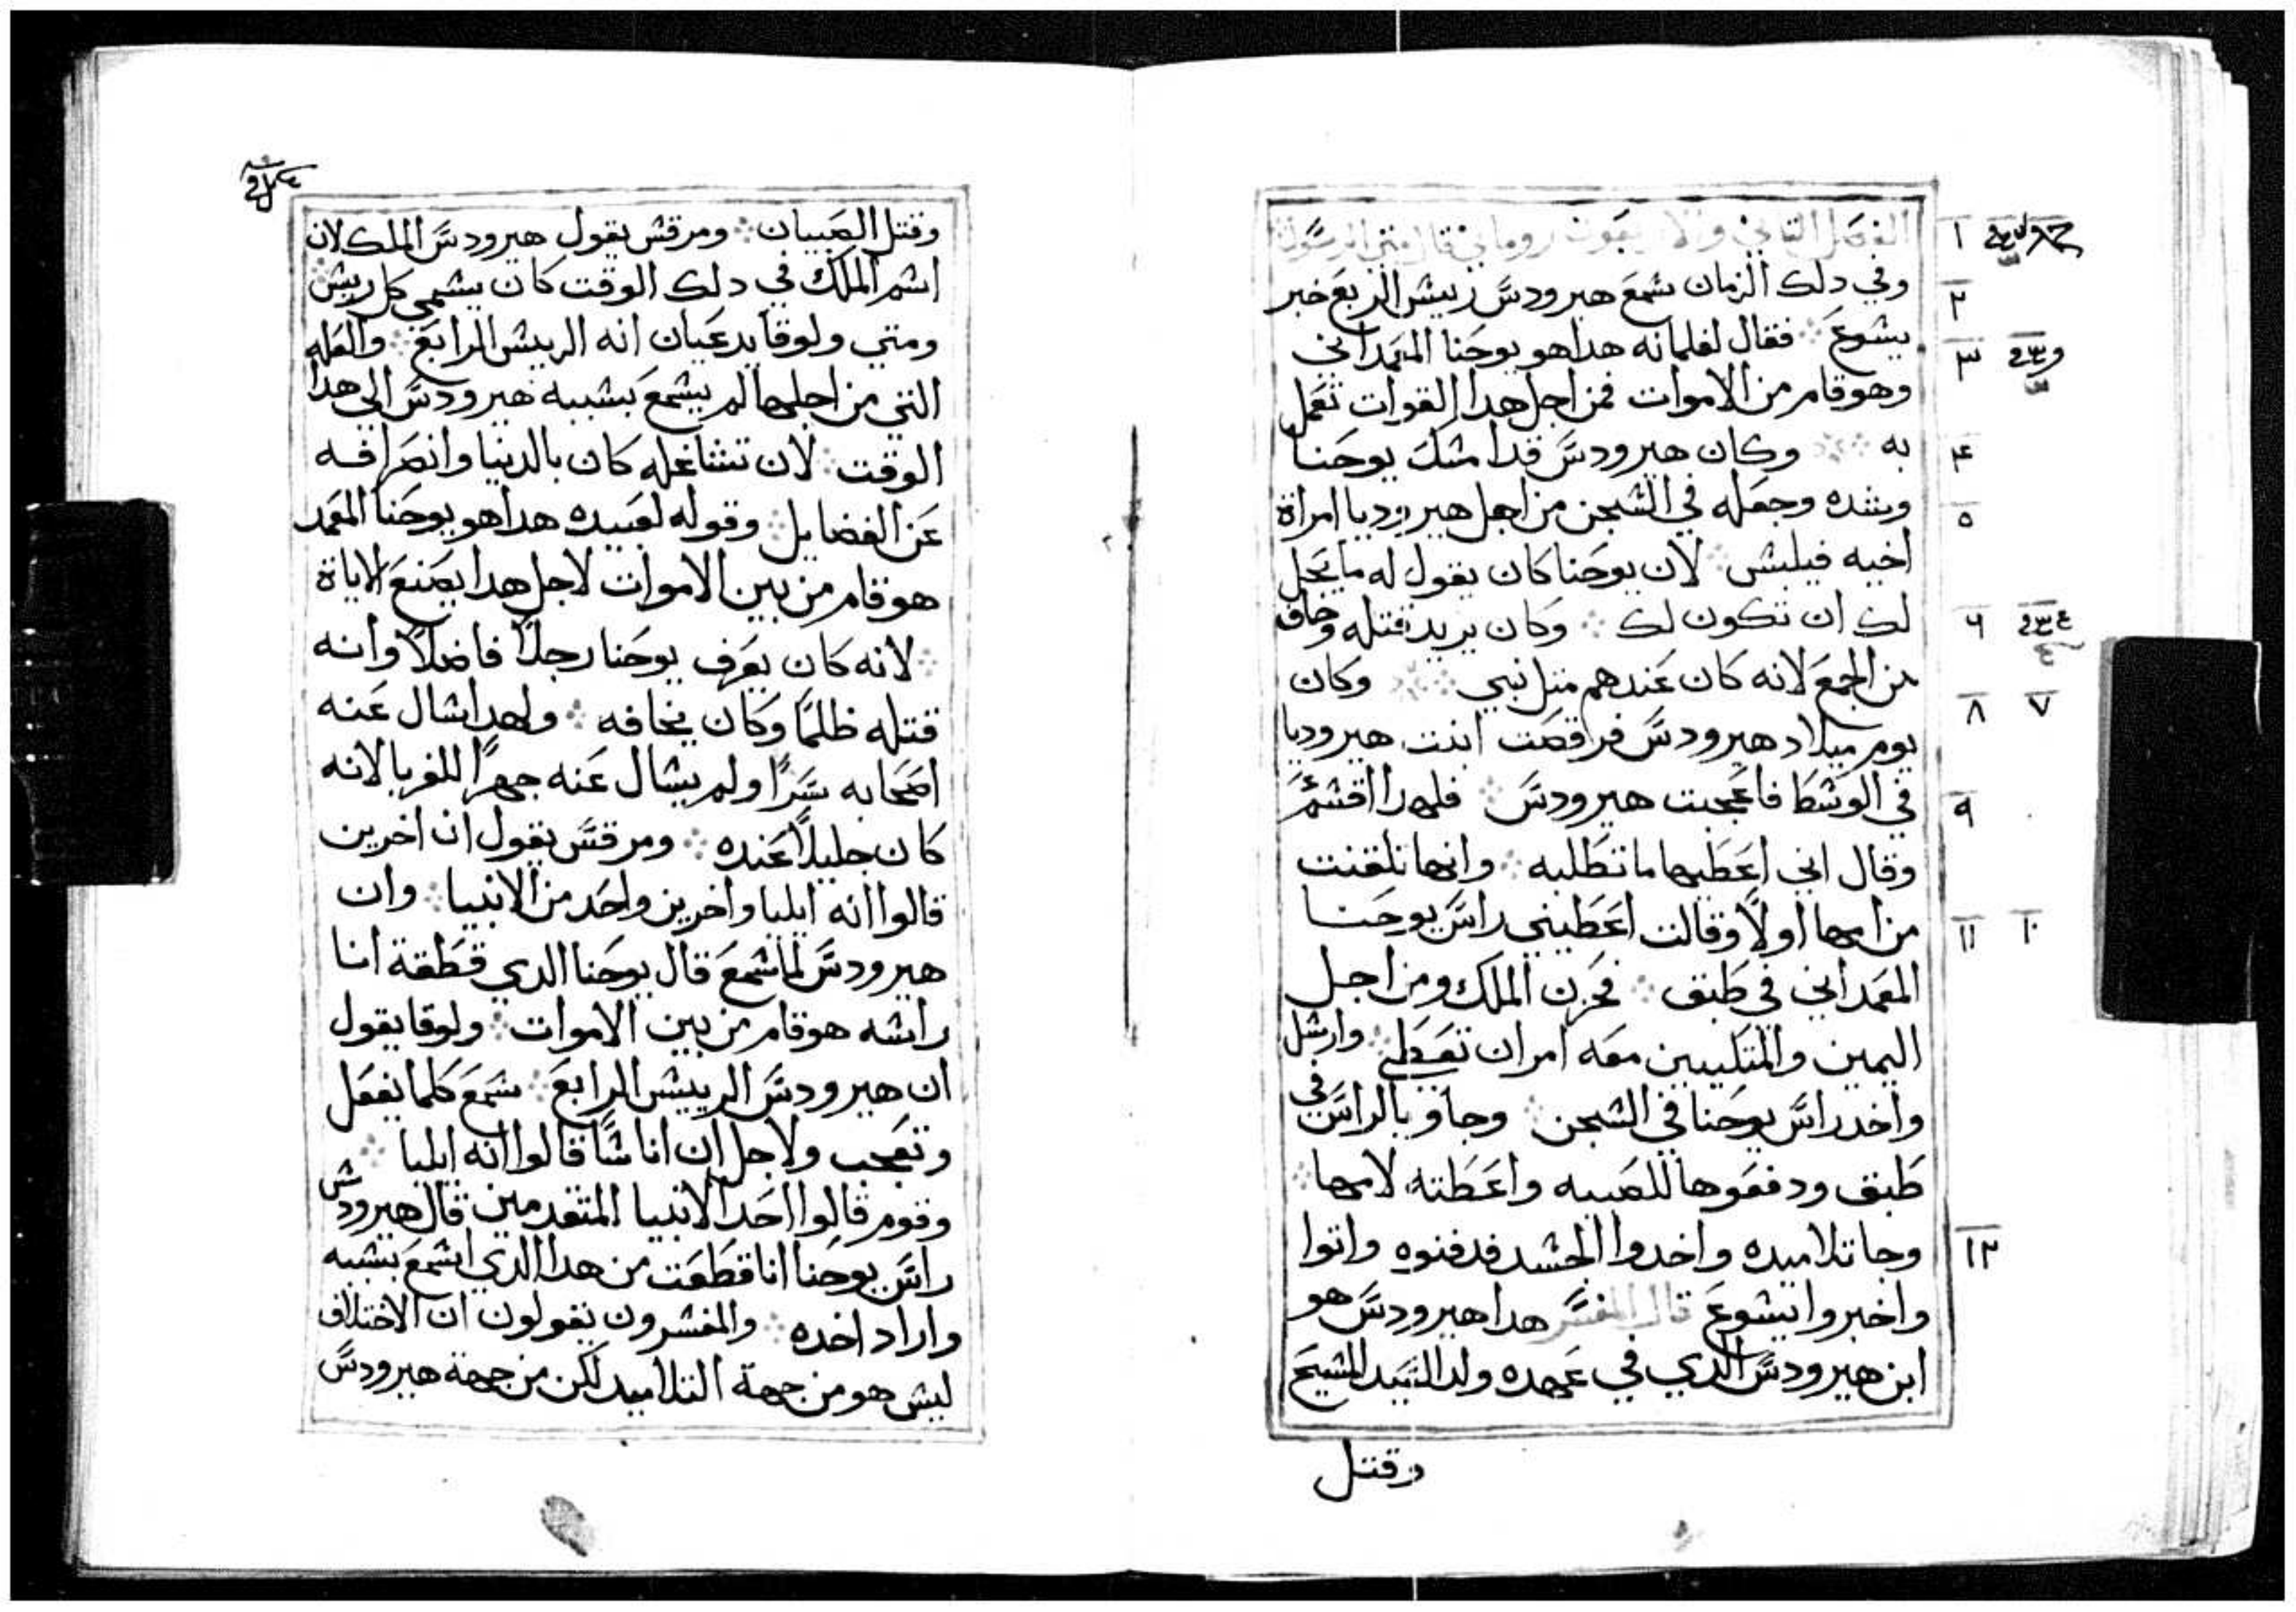 الفصل الثاني والاربعون روماني قال متي الرسول
وفي دلك الزمان شمع هيرودس ريبش الربع خبر
يشوع فقال لغلمانه هدا هو يوحنا المعمداني
وهو قام من الاموات فمن اجل هدا القوات تعمل
به وكان هيرودس قد امشك يوحنا
وشده وجعله في الشجن من اجل هيروديا امراة
اخيه فيلبش لان يوحنا كان يقول له ما يحل
لك ان تكون لك وكان يريد قتله وخاف
من الجمع لانه كان عندهم متل نبي وكان
يوم ميلاد هيرودس فرقصت ابنت هيروديا
في الوشط فاعجبت هيرودس فلهدا اقشم
وقال اني اعطيها ما تطلبه وانها تلقنت
من امها اولا وقالت اعطيني راس يوحنا
المعمداني في طبق فحزن الملك ومن اجل
اليمين والمتكيين معه امر ان تعطي وارشل
واخد راس يوحنا في الشجن وجاو بالراس في
طبق ودفعوها للصبيه واعطته لامها
وجا تلاميده واخدوا الجشد فدفنوه واتوا
واخبروا يشوع قال المفسر هدا هيرودس هو
ابن هيرودس الدي في عهده ولد السيد المشيح
وقتل
١
٢
٣
٤
٥
٦
٧ ٨
٩
١٠ ١١
١٢
وقتل الصبيان ومرقش يقول هيرودس الملك لان
اشم الملك في دلك الوقت كان يشمي كل ريش
ومتي ولوقا يدعيان انه الرييش الرابع والعله
التي من اجلها لم يشمع بشببه هيرودس الي هدا
الوقت لان تشاغله كان بالدنيا وانصرافه
عن الفضايل وقوله لعبيده هدا هو يوحنا المعمد
هو قام من بين الاموات لاجل هدا يصنع الاياة
لانه كان يعرف يوحنا رجلا فاضلا وانه
قتله ظلما وكان يخافه ولهدا شال عنه
اصحابه سرا ولم يشال عنه جهرا للغربا لانه
كان جليلا عنده ومرقس يقول ان اخرين
قالوا انه ايليا واخرين واحد من الانبيا وان
هيرودس لما شمع قال يوحنا الدي قطعة انا
راشه هو قام من بين الاموات ولوقا يقول
ان هيرودس الرييش الرابع شمع كلما يفعل
وتعجب ولاجل ان اناشا قالوا انه ايليا
وقوم قالوا احد الانبيا المتقدمين قال هيرودش
راس يوحنا انا قطعت من هدا الدي اشمع بشببه
واراد اخده والمفشرون يقولون ان الاختلاف
ليش هو من جهة التلاميد لكن من جهة هيرودس